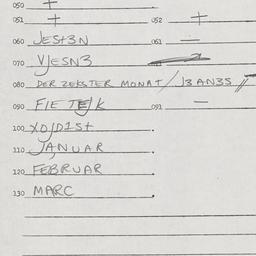 050 +
051 + 052 +
060 JEST3N 061 —
070 VJESN3
080 DER ZEKSTER MONAT / J3AN3S //
090 FIE TEJK 091 —
100 XOJDIST
110 JANUAR
120 FEBRUAR
130 MARC